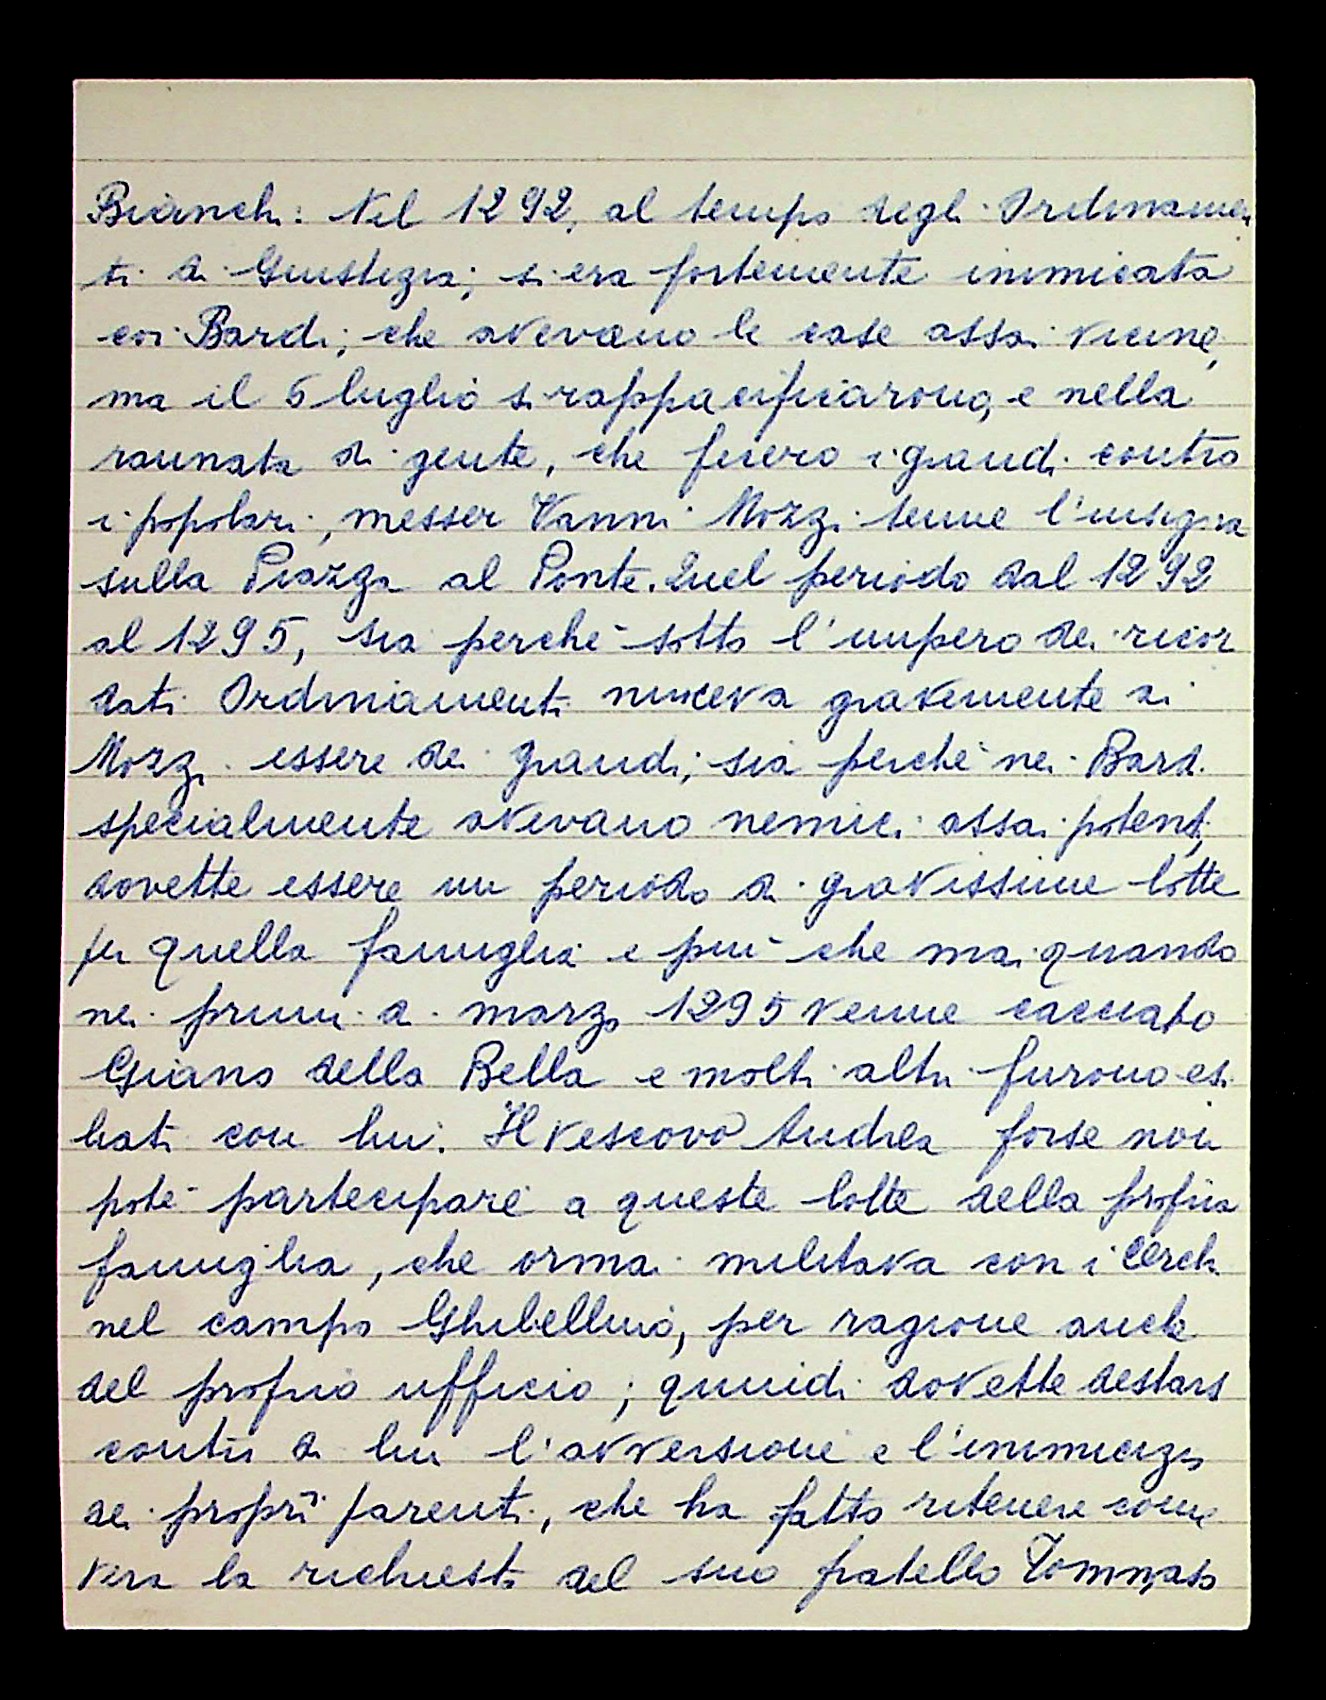 Bianchi: Nel 1292, al tempo degli Ordinamen
ti di Giustizia; si era fortemente inimicata
coi Bardi; che avevano le case assai vicine,
ma il 5 luglio si rappacificarono, e nella
raunata di gente, che fecero i grandi contro
i popolari, messer Vanni Mozzi tenne l'insegna
sulla Piazza al Ponte. Quel periodo dal 1292
al 1295, sia perchè sotto l'impero dei ricor
dati Ordinamenti nuoceva gravemente ai
Mozzi essere dei grandi; sia perchè nei Bardi
specialmente avevano nemici assai potenti,
dovette essere un periodo di gravissime lotte
per quella famiglia e più che mai quando
nei primi di marzo 1295 venne cacciato
Giano della Bella e molti altri furono esi
liati con lui. Il vescovo Andrea forse non
potè partecipare a queste lotte della propria
famiglia, che ormai militava con i Cerchi
nel campo Ghibellino, per ragione anche
del proprio ufficio; quindi dovette destarsi
contro di lui l'avversione e l'inimicizia
dei proprî parenti, che ha fatto ritenere come
vera la richiesta del suo fratello Tommaso